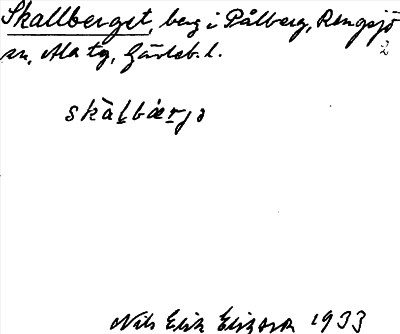 Skallberget, berg i Pålberg, Rengsjö
sn, Ala tg, Gävleb. l.
2
skàḷbæ̀rjə
Nils Erik Eliasson 1933